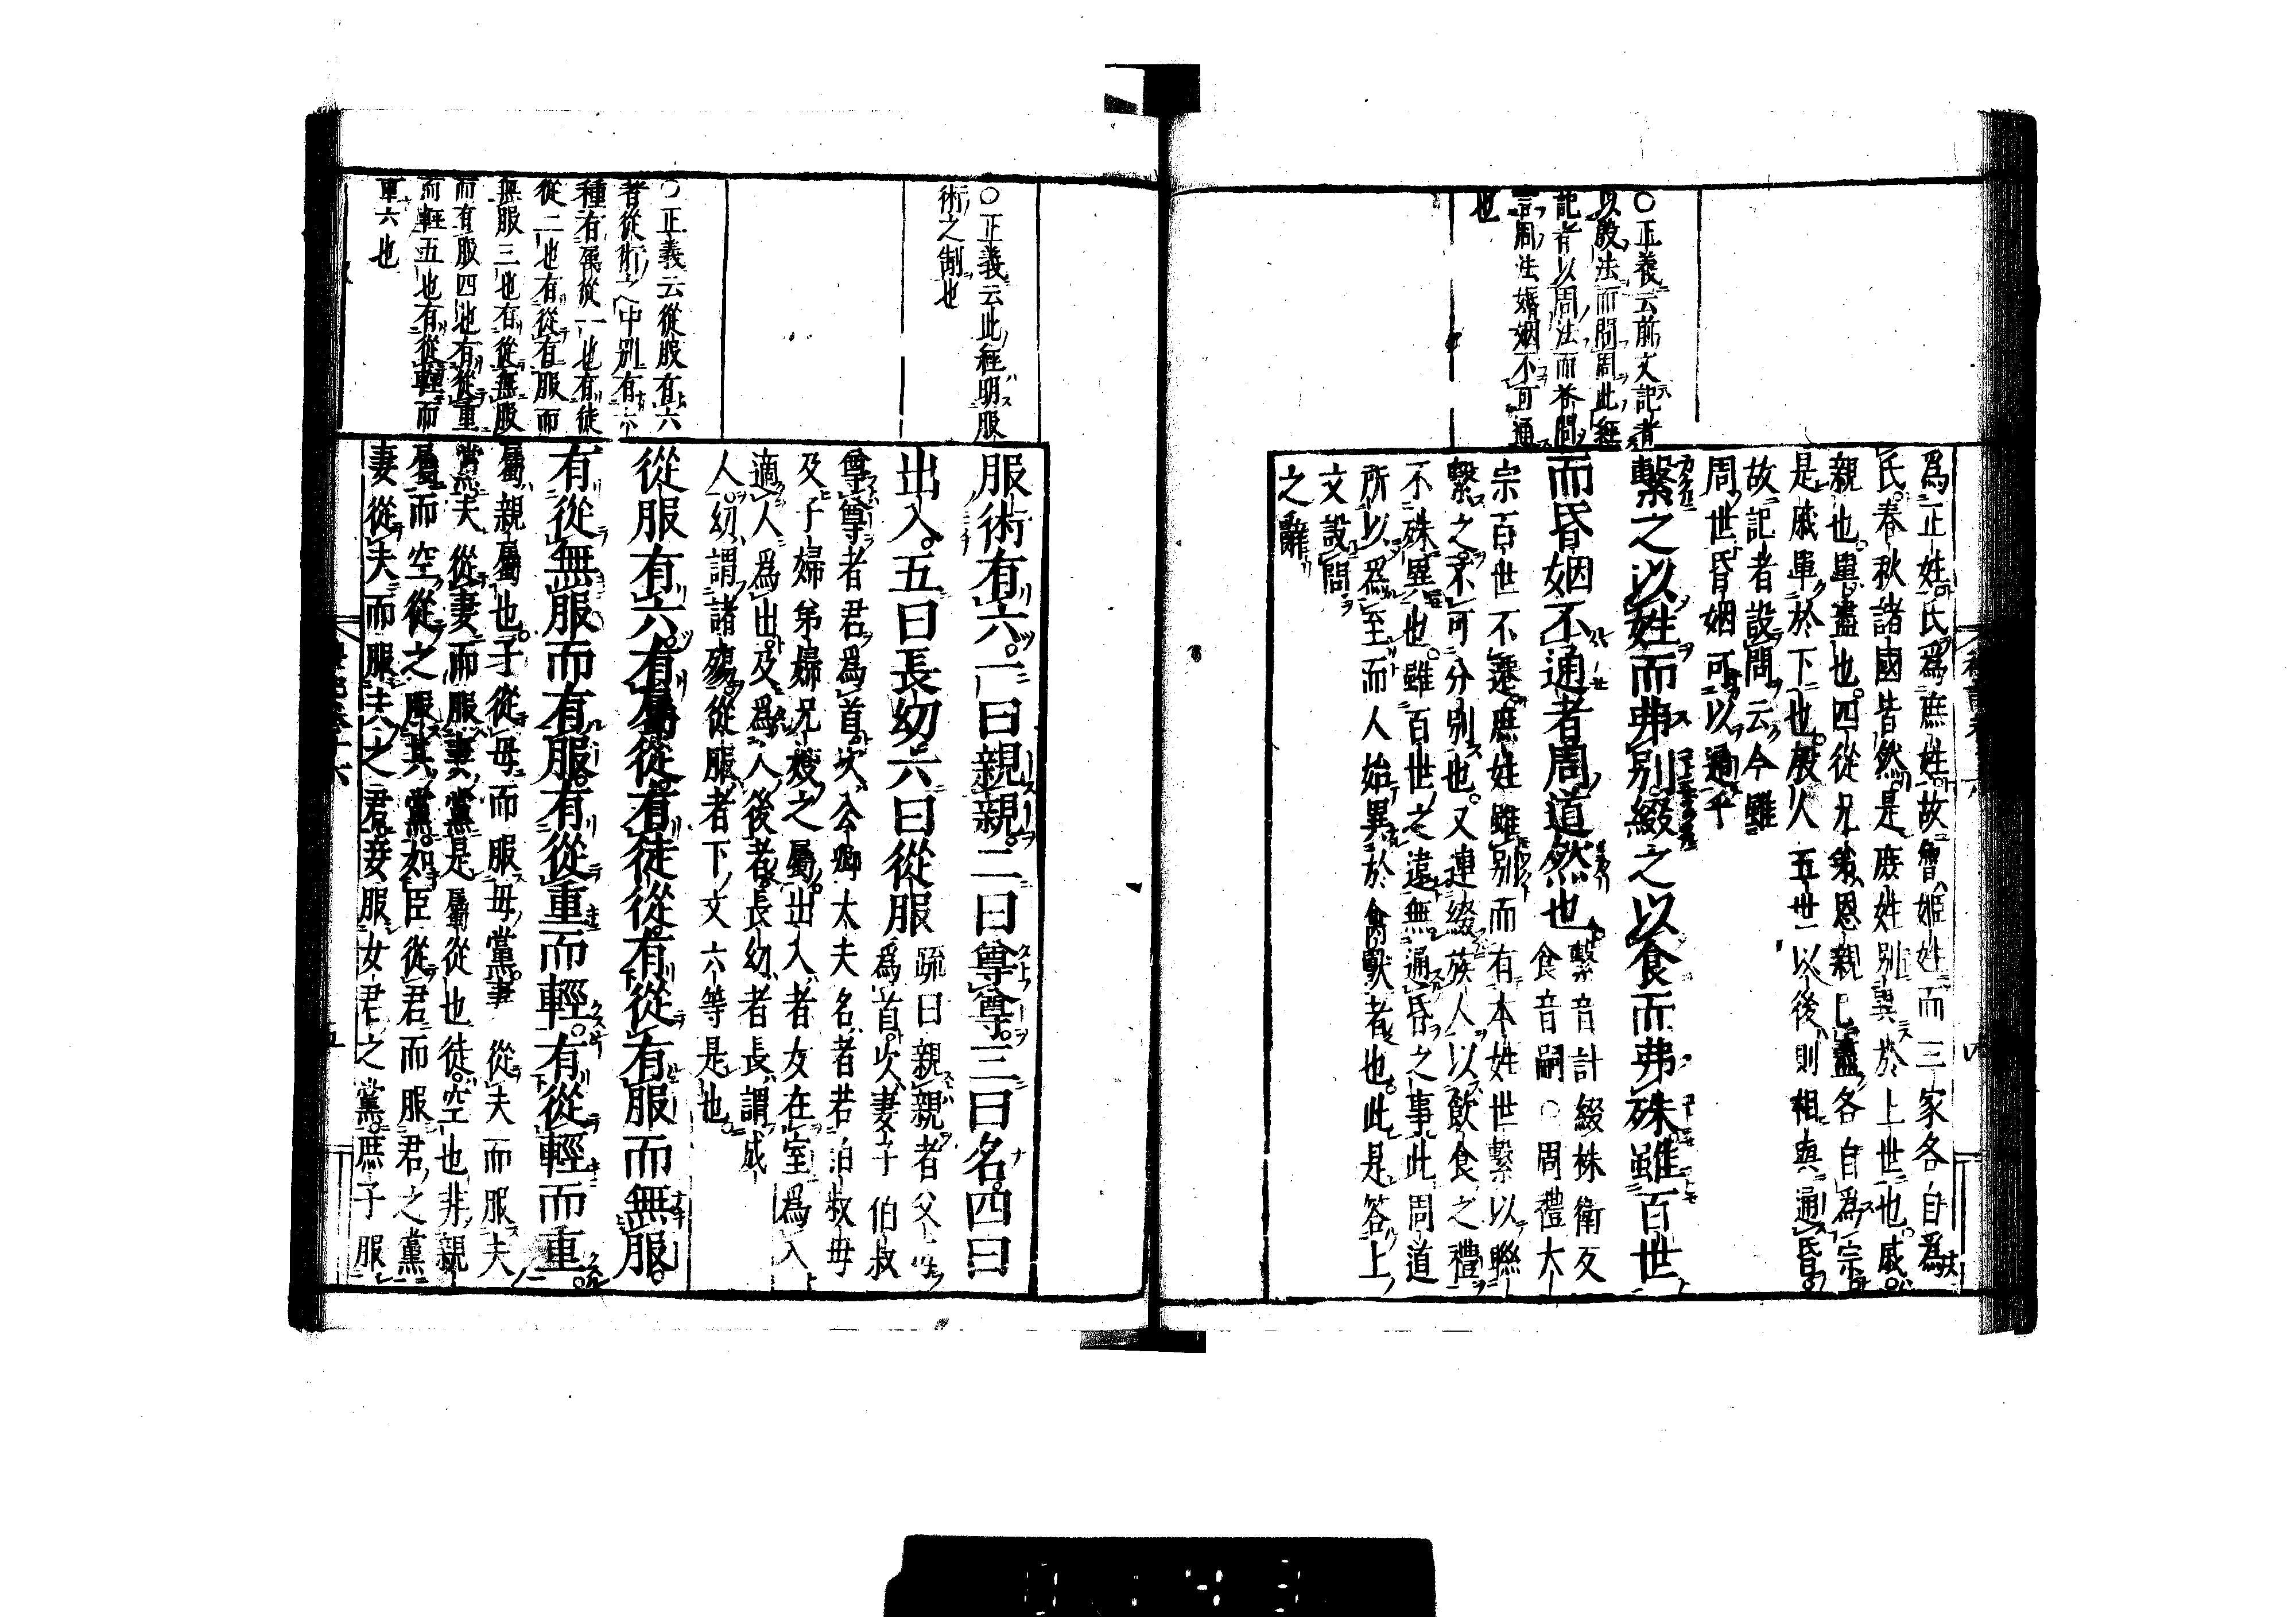 爲正姓氏爲庶姓故魯姬姓而三家各自爲
氏春秋諸國皆然是庶姓別異於上世也戚
親也單盡也四從兄弟恩親已盡各自爲宗
是戚單於下也殷人五世以後則相與通昏
故記者設問云今雖
周世昏姻可以通乎
〇正義云前文記者
以殷法而問周此經
記者以周法而答問
言周法婚姻不可通
也
繫之以姓而弗別綴之以食而弗殊雖百世
而昏姻不通者周道然也
繫音計綴株衛反
食音嗣〇周禮大
宗百世不遷庶姓雖別而有本姓世繫以聯
繫之不可分別也又連綴族人以飲食之禮
不殊異也雖百世之遠無通昏之事此周道
所以爲至而人始異於禽獸者也此是答上
文設問
之辭
〇正義云此經明服
術之制也
服術有六一曰親親二曰尊尊三曰名四曰
出入五曰長幼六曰從服
疏曰親親者父
爲首次妻子伯叔
尊尊者君爲首次公卿大夫名者若伯叔母
及子婦弟婦兄嫂之屬出入者女在室爲入
適人爲出及爲人後者長幼者長謂成
人幼謂諸殤從服者下文六等是也
〇正義云從服有六
者從術之中別有六
種有屬從一也有徒
從二也有從有服而
無服三也有從無服
而有服四也有從重
而輕五也有從輕而
重六也
從服有六有屬從有徒從有從有服而無服
有從無服而有服有從重而輕有從輕而重
屬親屬也子從母而服母黨妻從夫而服夫
黨夫從妻而服妻黨是屬從也徒空也非親
屬而空從之服其黨如臣從君而服君之黨
妻從夫而服夫之君妾服女君之黨庶子服